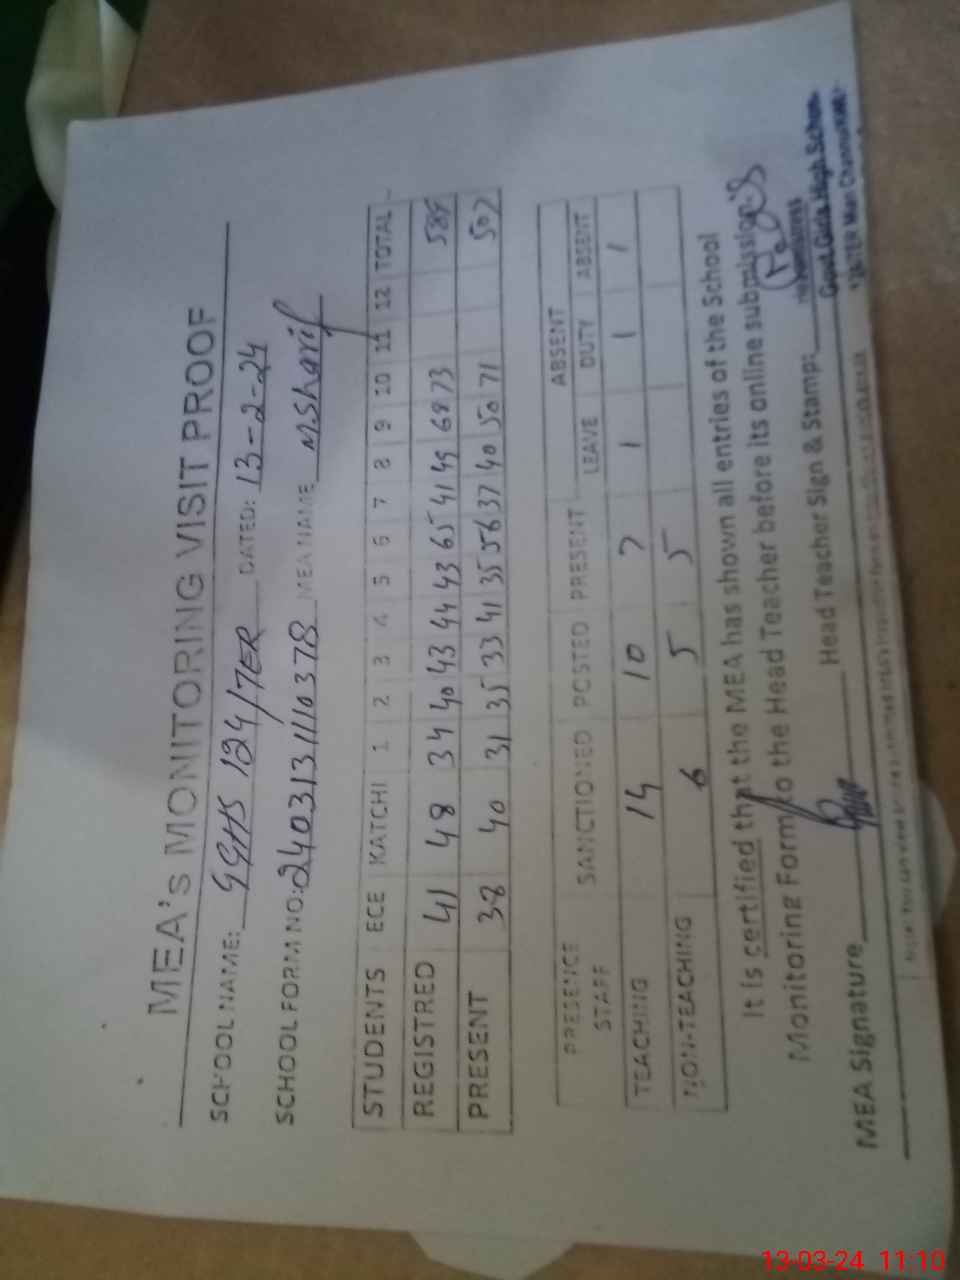 MEA's MONITORING VISIT PROOF
SCHOOL NAME: GGHS 124/TER DATED: 13-2-24
SCHOOL FORM NO: 24031311110378 MEA NAME M.Sharif
STUDENTS ECE KATCHI 1 2 3 4 5 6 7 8 9 10 11 12 TOTAL
REGISTRED 41 48 34 40 43 44 43 65 41 45 68 73 585
PRESENT 38 40 31 35 33 41 35 56 37 40 50 71 507
PRESENCE STAFF SANCTIONED POSTED PRESENT ABSENT
LEAVE DUTY ABSENT
TEACHING 14 10 7 1 1 1
NON-TEACHING 6 5 5
It is certified that the MEA has shown all entries of the School
Monitoring Form to the Head Teacher before its online submission.
MEA Signature Head Teacher Sign & Stamp:
Headmistress
Govt. Girls High School
124/TER Mian Channu
13-03-24 11:10